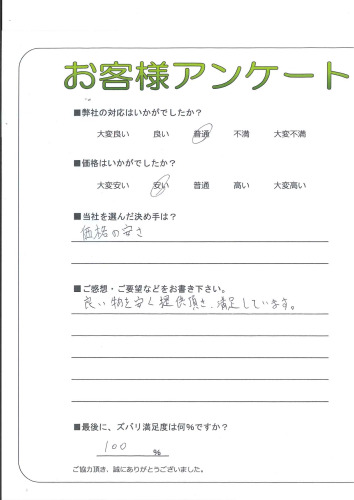 お客様アンケート
■弊社の対応はいかがでしたか？
大変良い 良い 普通 不満 大変不満
■価格はいかがでしたか？
大変安い 安い 普通 高い 大変高い
■当社を選んだ決め手は？
価格の安さ
■ご感想・ご要望などをお書き下さい。
良い物を安く提供頂き、満足しています。
■最後に、ズバリ満足度は何％ですか？
100 ％
ご協力頂き、誠にありがとうございました。